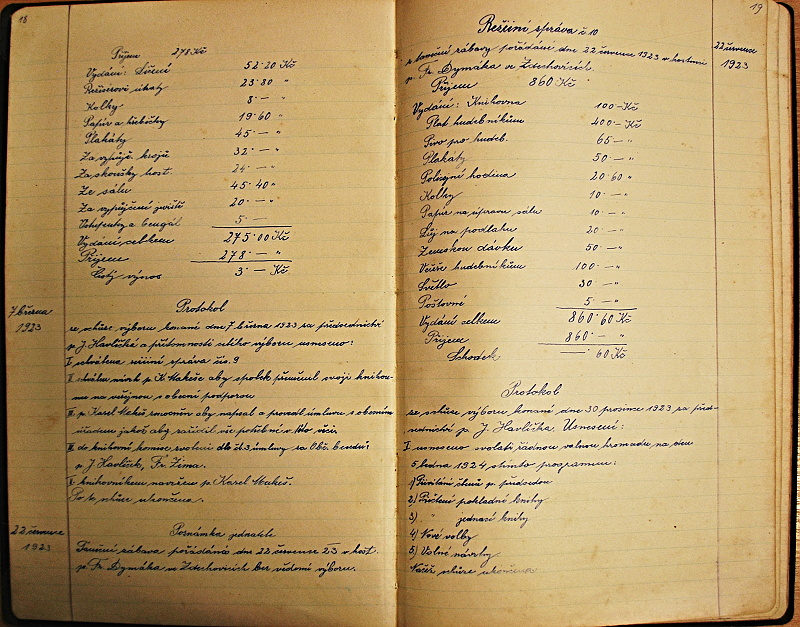 18
Příjem 278 Kč
Vydání: Šření 52·20 Kč
23·80 "
Kolky 8·— "
Papír a 19·60 "
Plakáty 45·— "
Za vypůjč. kroje 32·— "
Za zkoušky host. 24·— "
Ze sálu 45·40 "
Za vypůjčení 20·— "
Vstupenky a bengál 5·—
Vydání celkem 275·00 Kč
Příjem 278·— "
Čistý výnos 3·— Kč
7 března
1923
Protokol
ze schůze výboru konané dne 7 března 1923 za předsednictví
p. J. Havlíčka a přítomnosti celého výboru usneseno:
I schválena zpráva čís. 9
II návrh p. K. Makeše aby spolek propůjčil svoji knihov-
nu na veřejnou s obecní podporou
III p. Karel Makeš zmocněn aby napsal a provedl smlouvu s obecním
úřadem jakož aby zařídil vše potřebné v této věci.
III do knihovní komise zvoleni dle čl. 3 smlouvy za Obč. besedu:
p. J. Havlíček, Fr. Zima.
V knihovníkem navržen p. Karel Makeš.
Tím schůze ukončena.
22 července
1923
Poznámka jednatele
Taneční zábava pořádána dne 22 července 23 v host.
p. Fr. Dymáka ve Zdechovicích bez vědomí výboru.
19
Režijní zpráva č. 10
z taneční zábavy pořádané dne 22 července 1923 v hostinci
p. Fr. Dymáka ve Zdechovicích.
22 července
1923
Příjem 860 Kč
Vydání: Knihovna 100·— Kč
Plat hudebníkům 400·— Kč
Pivo pro hudeb. 65·— "
Plakáty 50·— "
Policejní hodina 20·60 "
Kolky 10·— "
Papír na úpravu sálu 10·— "
Lůj na podlahu 20·— "
Zemskou dávku 50·— "
Večeře hudebníkům 100·— "
Světlo 30·— "
Poštovné 5·— "
Vydání celkem 860·60 Kč
Příjem 860·— "
Schodek —·60 Kč
Protokol
ze schůze výboru konané dne 30 prosince 1923 za před-
sednictví p. J. Havlíčka. Usneseni:
I usneseno svolati řádnou valnou hromadu na den
5 ledna 1924 s tímto programem:
1) Přivítání členů p. předsedou
2) Přečtení pokladní knihy
3) " jednací knihy
4) Nové volby
5) Volné návrhy
Načež schůze ukončena